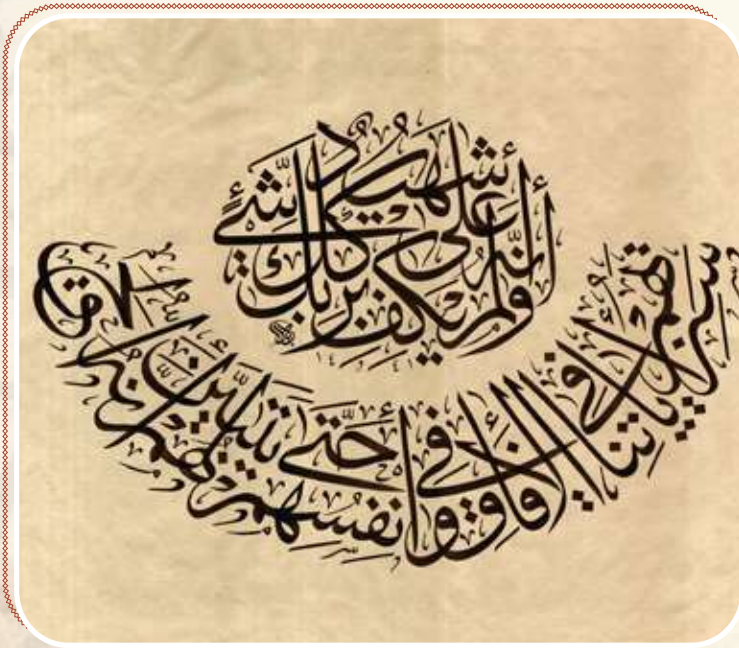 سنريهم آياتنا في الآفاق وفي أنفسهم حتى يتبين لهم أنه الحق
أولم يكف بربك أنه على كل شيء شهيد